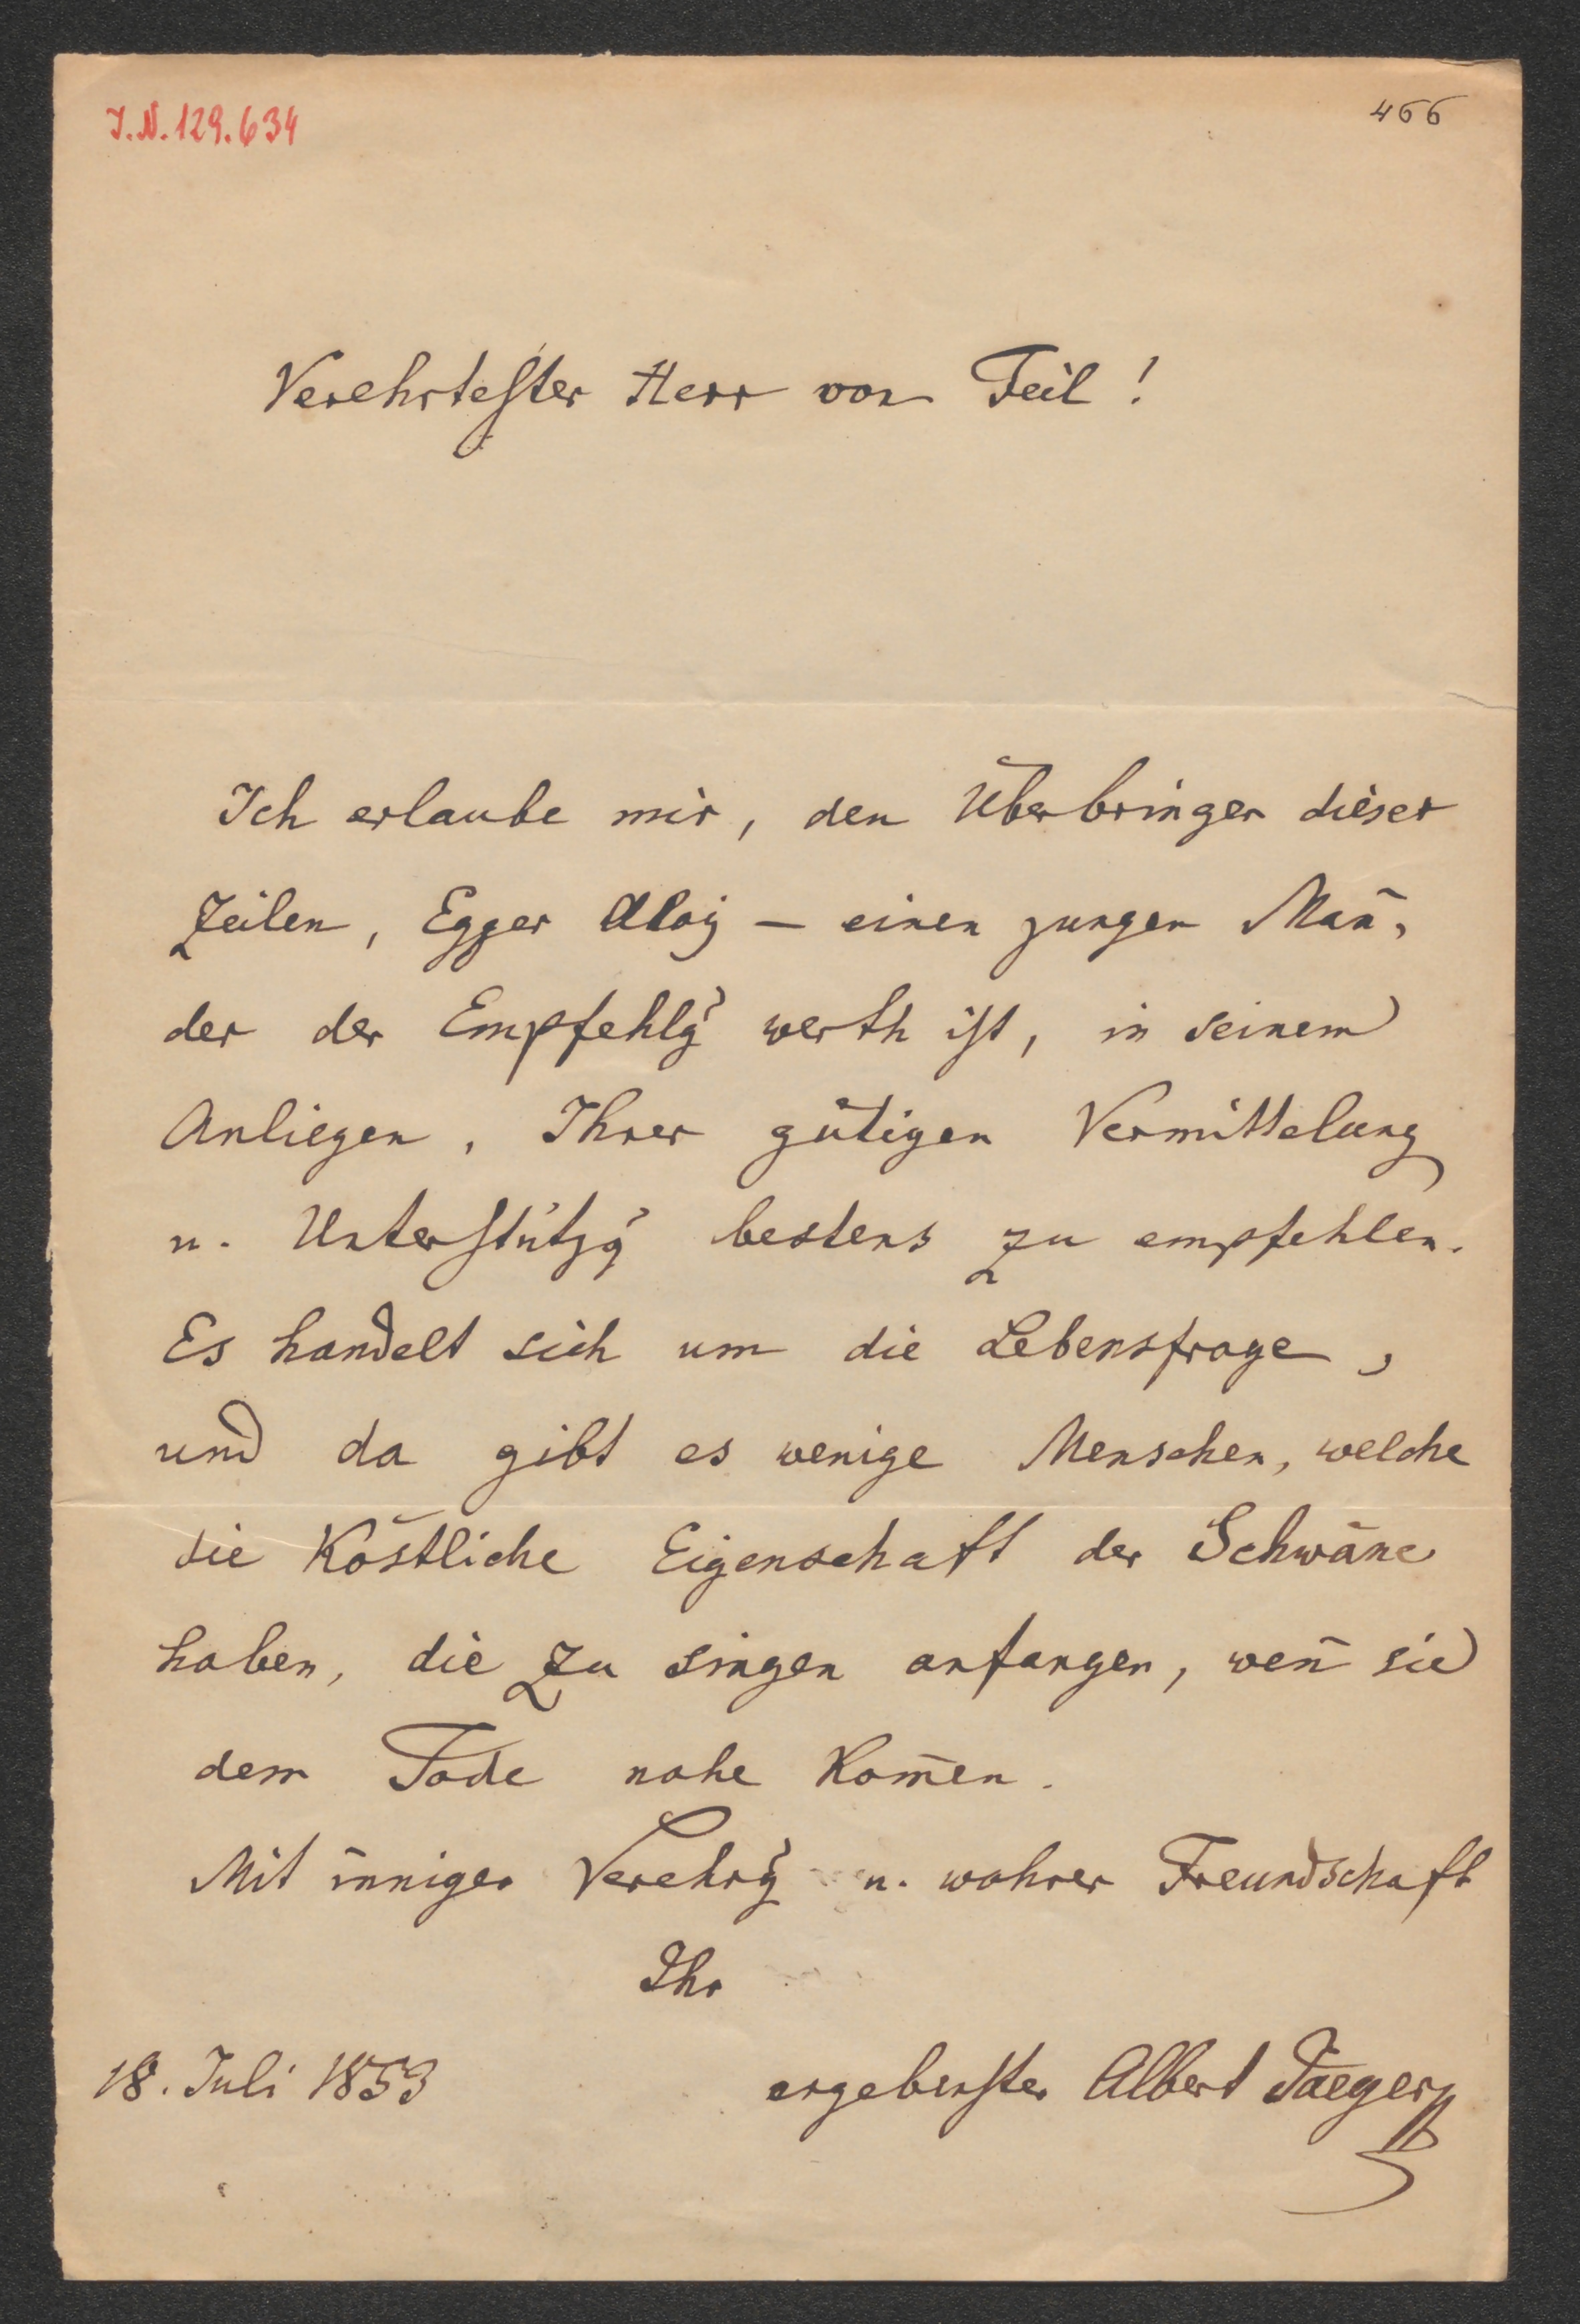 J.N.129.634
466
Verehrtester Herr von Feil!
Ich erlaube mir, den Überbringer dieser
Zeilen, Egger Aloij — einen jungen Mañ,
der der Empfehlg werth ist, in seinem
Anliegen, Ihrer gütigen Vermittelung
u. Unterstützg bestens zu empfehlen.
Es handelt sich um die Lebensfrage,
und da gibt es wenige Menschen, welche
die Köstliche Eigenschaft der Schwäne
haben, die zu singen anfangen, weñ sie
dem Tode nahe kom̄en.
Mit inniger Verehrg u. wahrer Freundschaft
Ihr
18. Juli 1853
ergebenster Albert Jaeger